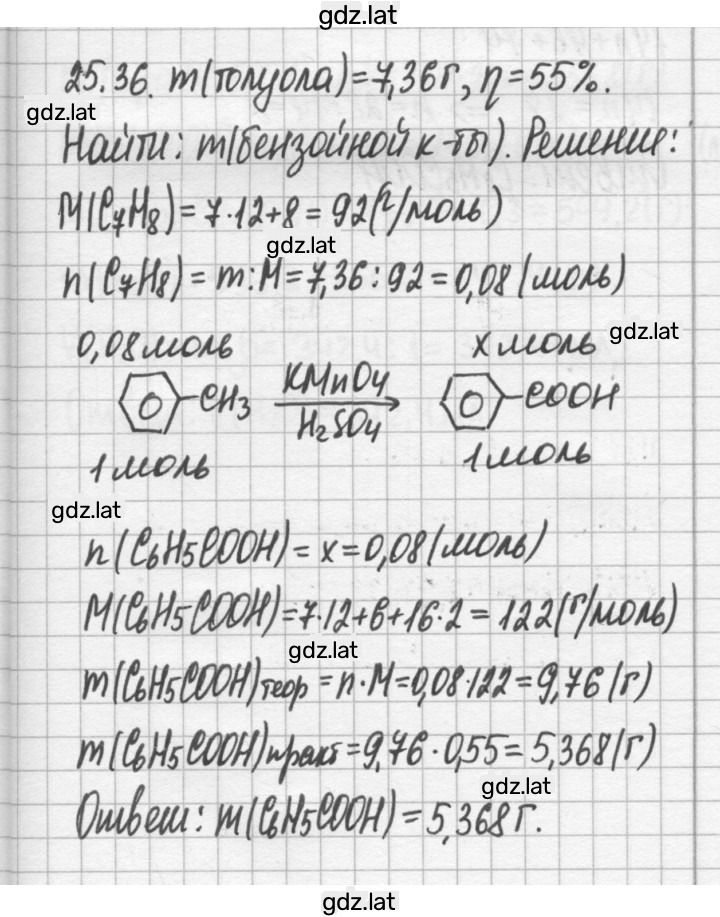 gdz.lat
25.36. m(толуола)=7,36г, η=55%.
gdz.lat
Найти: m(бензойной к-ты). Решение:
M(C7H8)=7·12+8=92(г/моль)
gdz.lat
n(C7H8)=m:M=7,36:92=0,08(моль)
0,08моль x моль gdz.lat
CH3 KMnO4 COOH
H2SO4
1моль 1моль
gdz.lat
n(C6H5COOH)=x=0,08(моль)
M(C6H5COOH)=7·12+6+16·2=122(г/моль)
gdz.lat
m(C6H5COOH)теор=n·M=0,08·122=9,76(г)
m(C6H5COOH)практ=9,76·0,55=5,368(г)
gdz.lat
Ответ: m(C6H5COOH)=5,368г.
gdz.lat